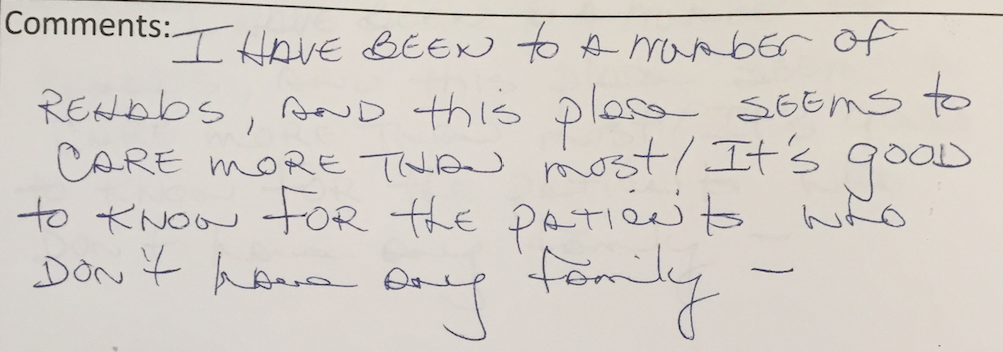 Comments: I HAVE BEEN to A number of
REHAbs, AND this place SEEMS to
CARE MORE THAN most! It's good
to KNOW FOR tHE PATIENts WHO
DON't have any family -